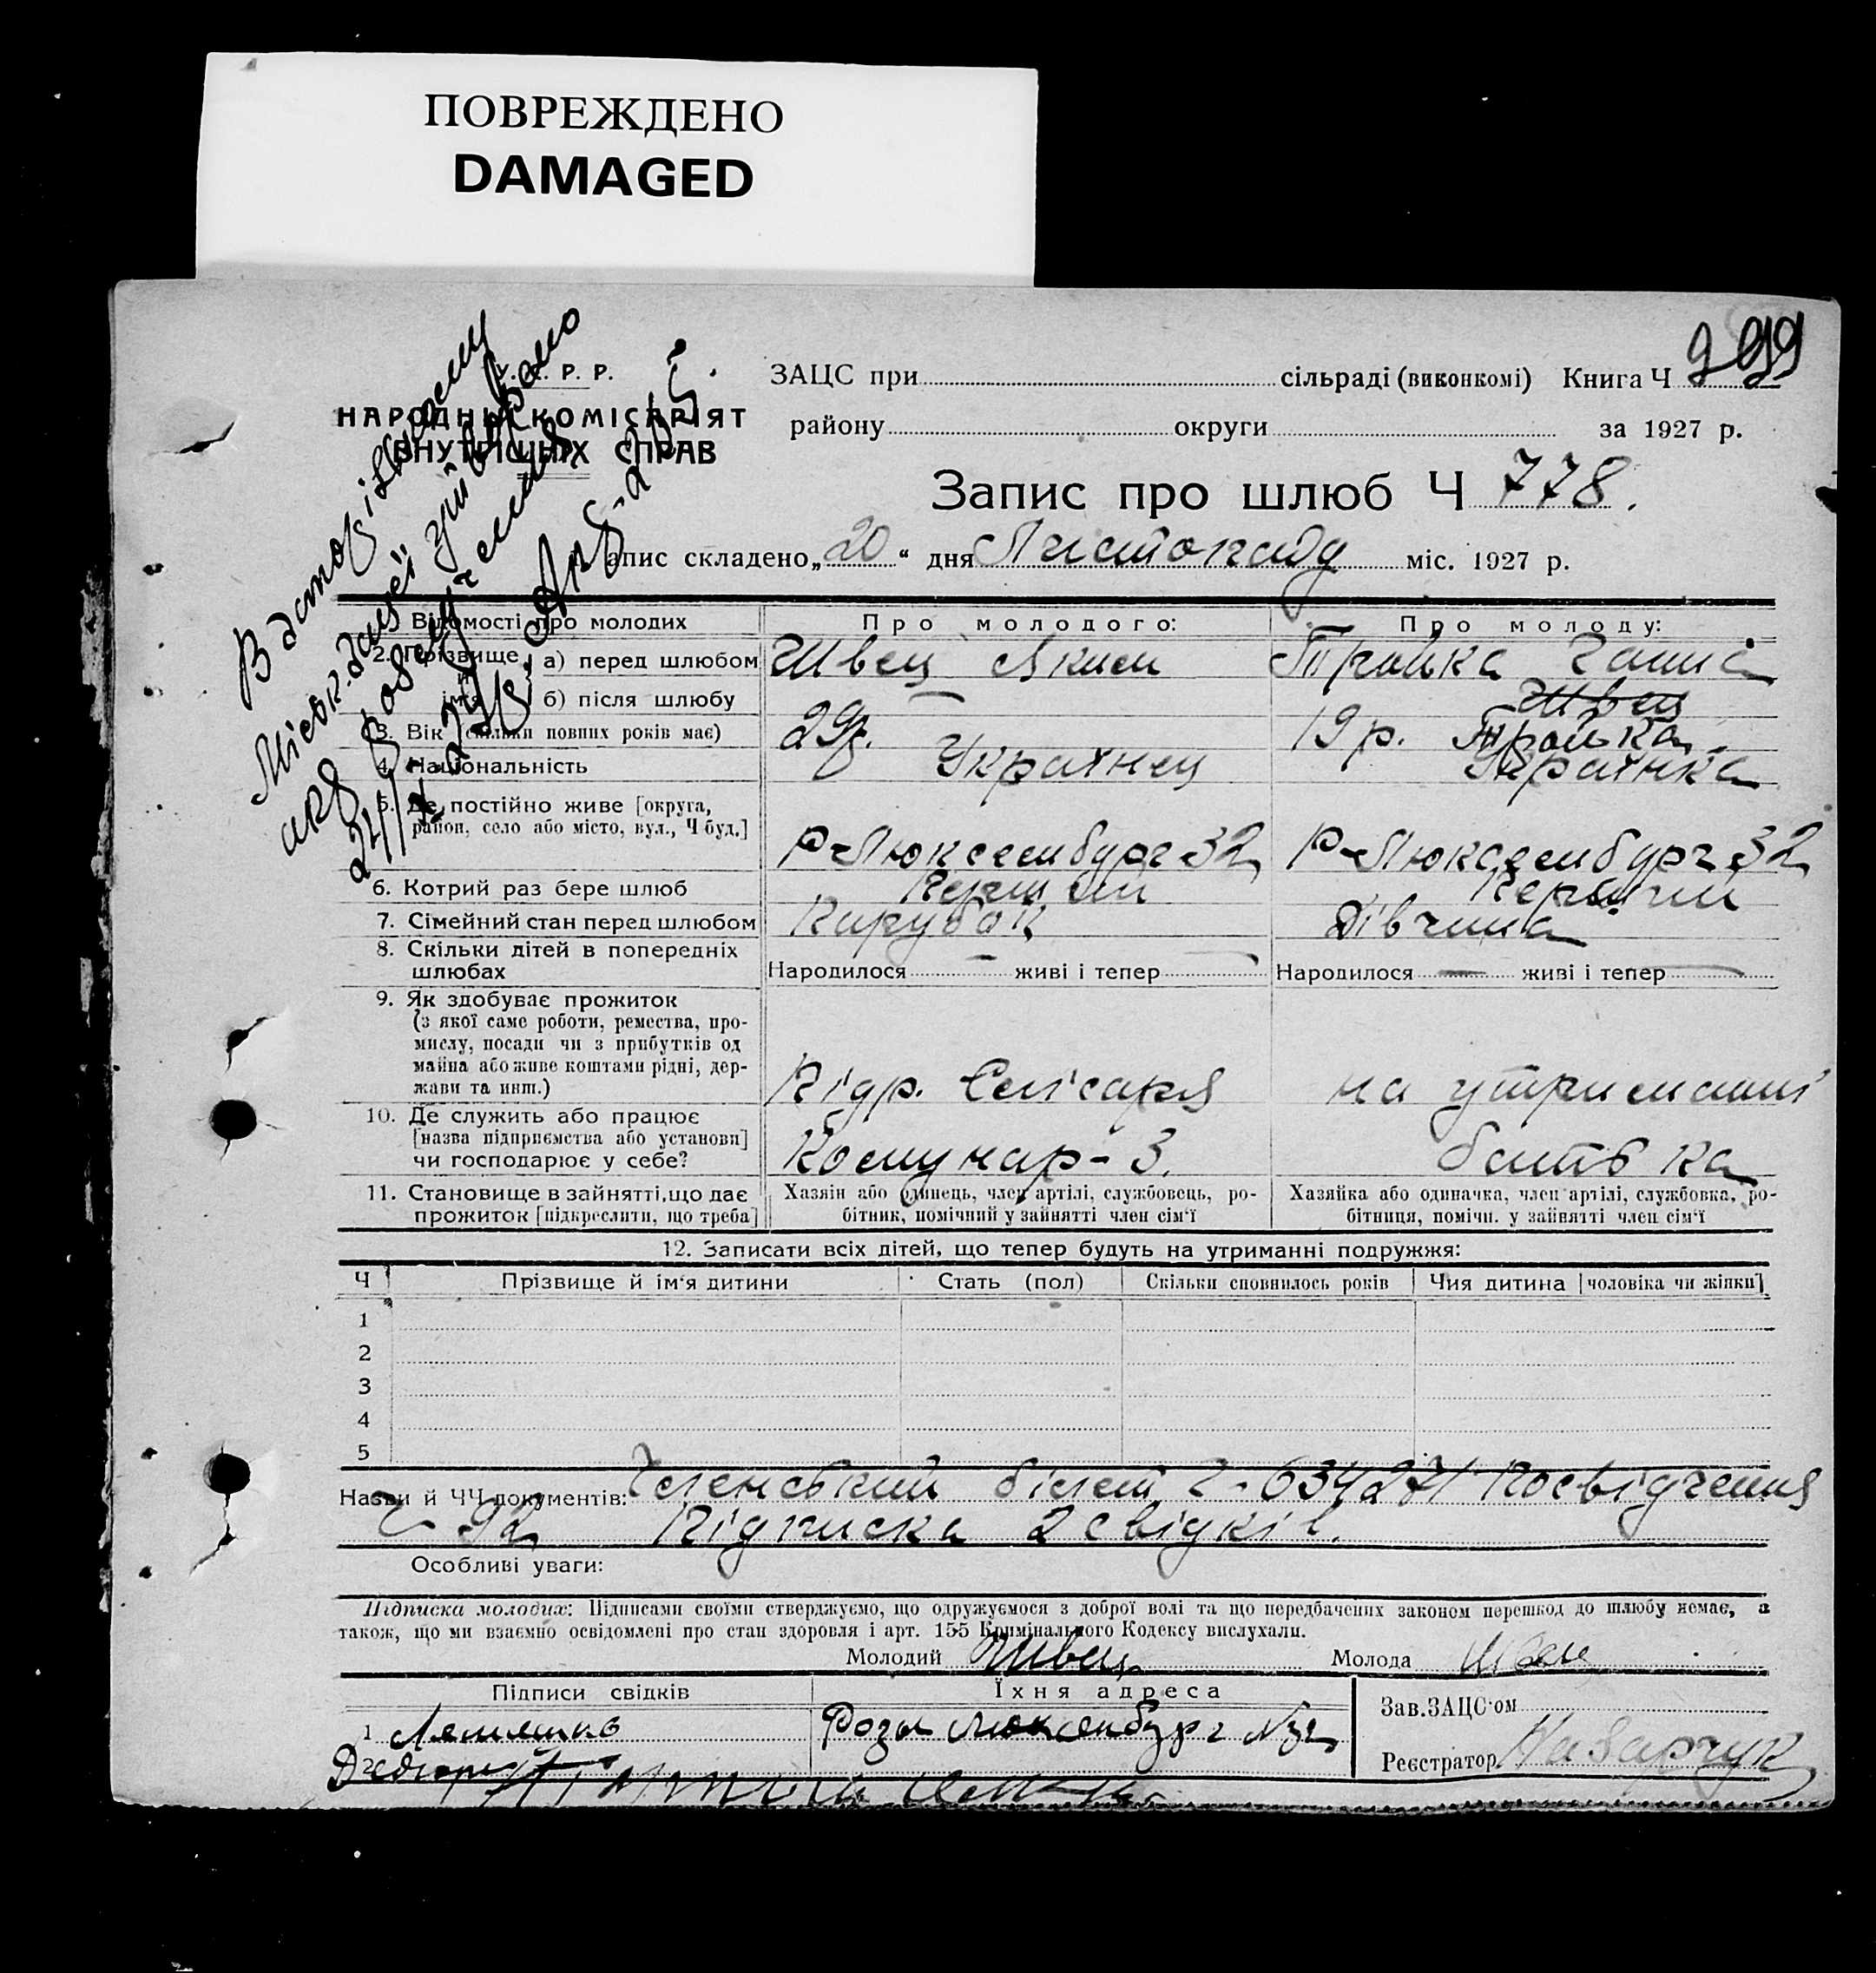 ПОВРЕЖДЕНО
DAMAGED
Р. Р.
НАРОДНІЙ КОМІСАРІЯТ
ВНУТРІШНІХ СПРАВ
ЗАЦС при сільраді (виконкомі) Книга Ч
району округи за 1927 р.
Запис про шлюб Ч 778.
Запис складено „20“ дня Листопаду міс. 1927 р.
Відомості про молодих
Про молодого:
Про молоду:
2. Прізвище й ім'я
а) перед шлюбом Швец Яким Тройка Ганна
б) після шлюбу — Швец Тройка
3. Вік (скільки повних років має) 29р. 19 р.
4. Національність Украінец Украінка
5. Де постійно живе [округа, район, село або місто, вул., Ч буд.]
Р-Люксембург 32 Р-Люксембург 32
6. Котрий раз бере шлюб Перший Перший
7. Сімейний стан перед шлюбом Парубок Дівчина
8. Скільки дітей в попередніх шлюбах
Народилося — живі і тепер — Народилося — живі і тепер —
9. Як здобуває прожиток
(з якої саме роботи, ремества, про-
мислу, посади чи з прибутків од
майна або живе коштами рідні, дер-
жави та инш.)
Підр. Слісаря на утриманні
10. Де служить або працює
[назва підприємства або установи]
чи господарює у себе?
Комунар-3. батька
11. Становище в зайнятті, що дає
прожиток [підкреслити, що треба]
Хазяїн або одинець, член артілі, службовець, ро-
бітник, помічний у зайнятті член сім'ї
Хазяйка або одиначка, член артілі, службовка, ро-
бітниця, помічн. у зайнятті член сім'ї
12. Записати всіх дітей, що тепер будуть на утриманні подружжя:
Ч Прізвище й ім'я дитини Стать (пол) Скільки сповнилось років Чия дитина [чоловіка чи жінки]
1
2
3
4
5
Назви й ЧЧ документів: Членський білет Посвідчення
Ч 92 Підписка 2 свідків.
Особливі уваги:
Підписка молодих: Підписами своїми стверджуємо, що одружуємося з доброї волі та що передбачених законом перешкод до шлюбу немає, а
також, що ми взаємно освідомлені про стан здоровля і арт. 155 Кримінального Кодексу вислухали.
Молодий Швец Молода Швец
Підписи свідків
Їхня адреса
Зав. ЗАЦС'ом
1
Розы Люксенбург
2
Реєстратор